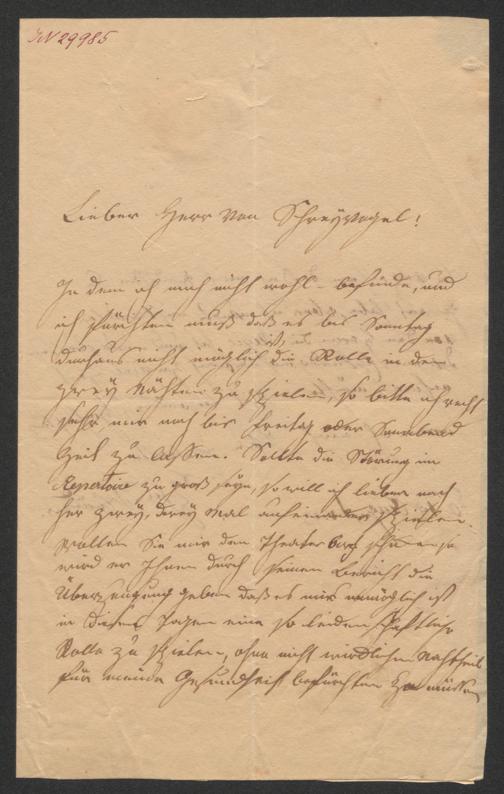 IN 29985
Lieber Herr von Schreyvogel!
In dem ich mich nicht wohl befinde, und
ich fürchten muß daß es bis Sonntag
durchaus nicht möglich ist, die Rolle in den
zwey Nächten zu spielen, so bitte ich recht
sehr mir noch bis Freitag oder Sonnabend
Zeit zu lassen. Sollte die Störung im
Repertoire zu groß seyn, so will ich lieber nach
her zwey, drey Mal aufeinander spielen.
Wollen Sie mir den Theater Arzt so
wird er Ihnen durch seinen Bericht die
Überzeugung geben daß es mir unmöglich ist
in diesen Tagen eine so leidenschaftliche
Rolle zu spielen, ohne nicht wirklichen Nachtheil
für meine Gesundheit befürchten zu müssen